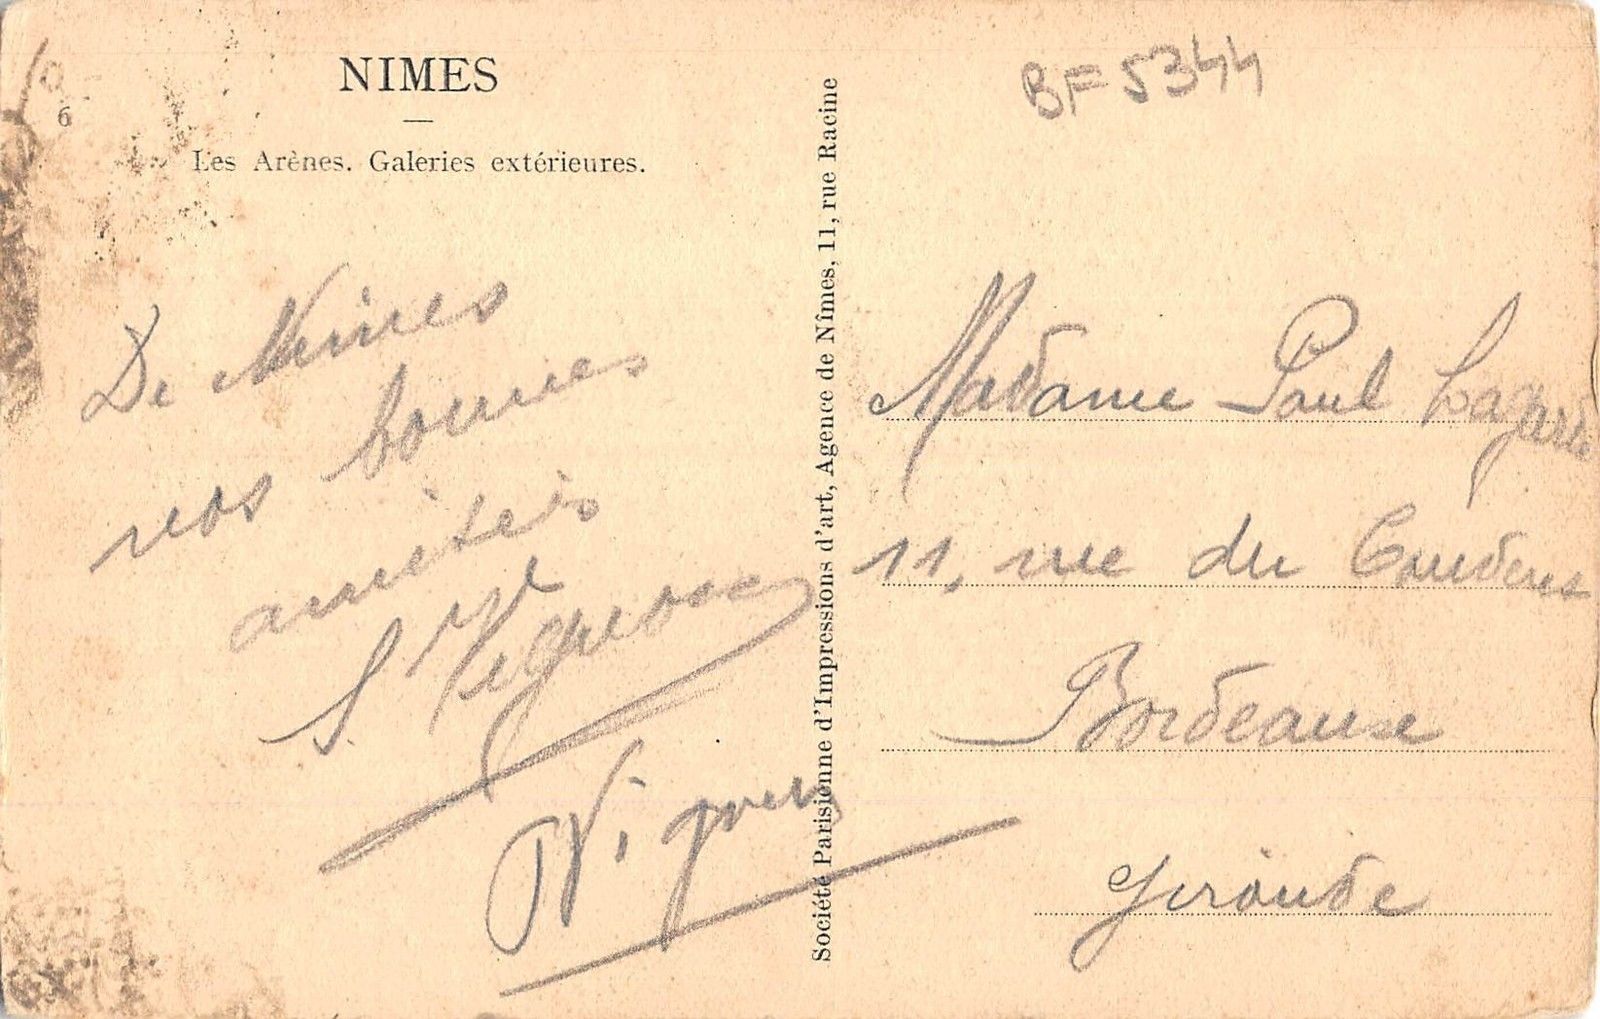 NIMES
6
Les Arènes. Galeries extérieures.
De Nimes
nos bonnes
amitiés
S.
Société Parisienne d'Impressions d'art, Agence de Nîmes, 11, rue Racine
BF 5344
Madame Paul Lagarde
11, rue du
Bordeaux
Gironde